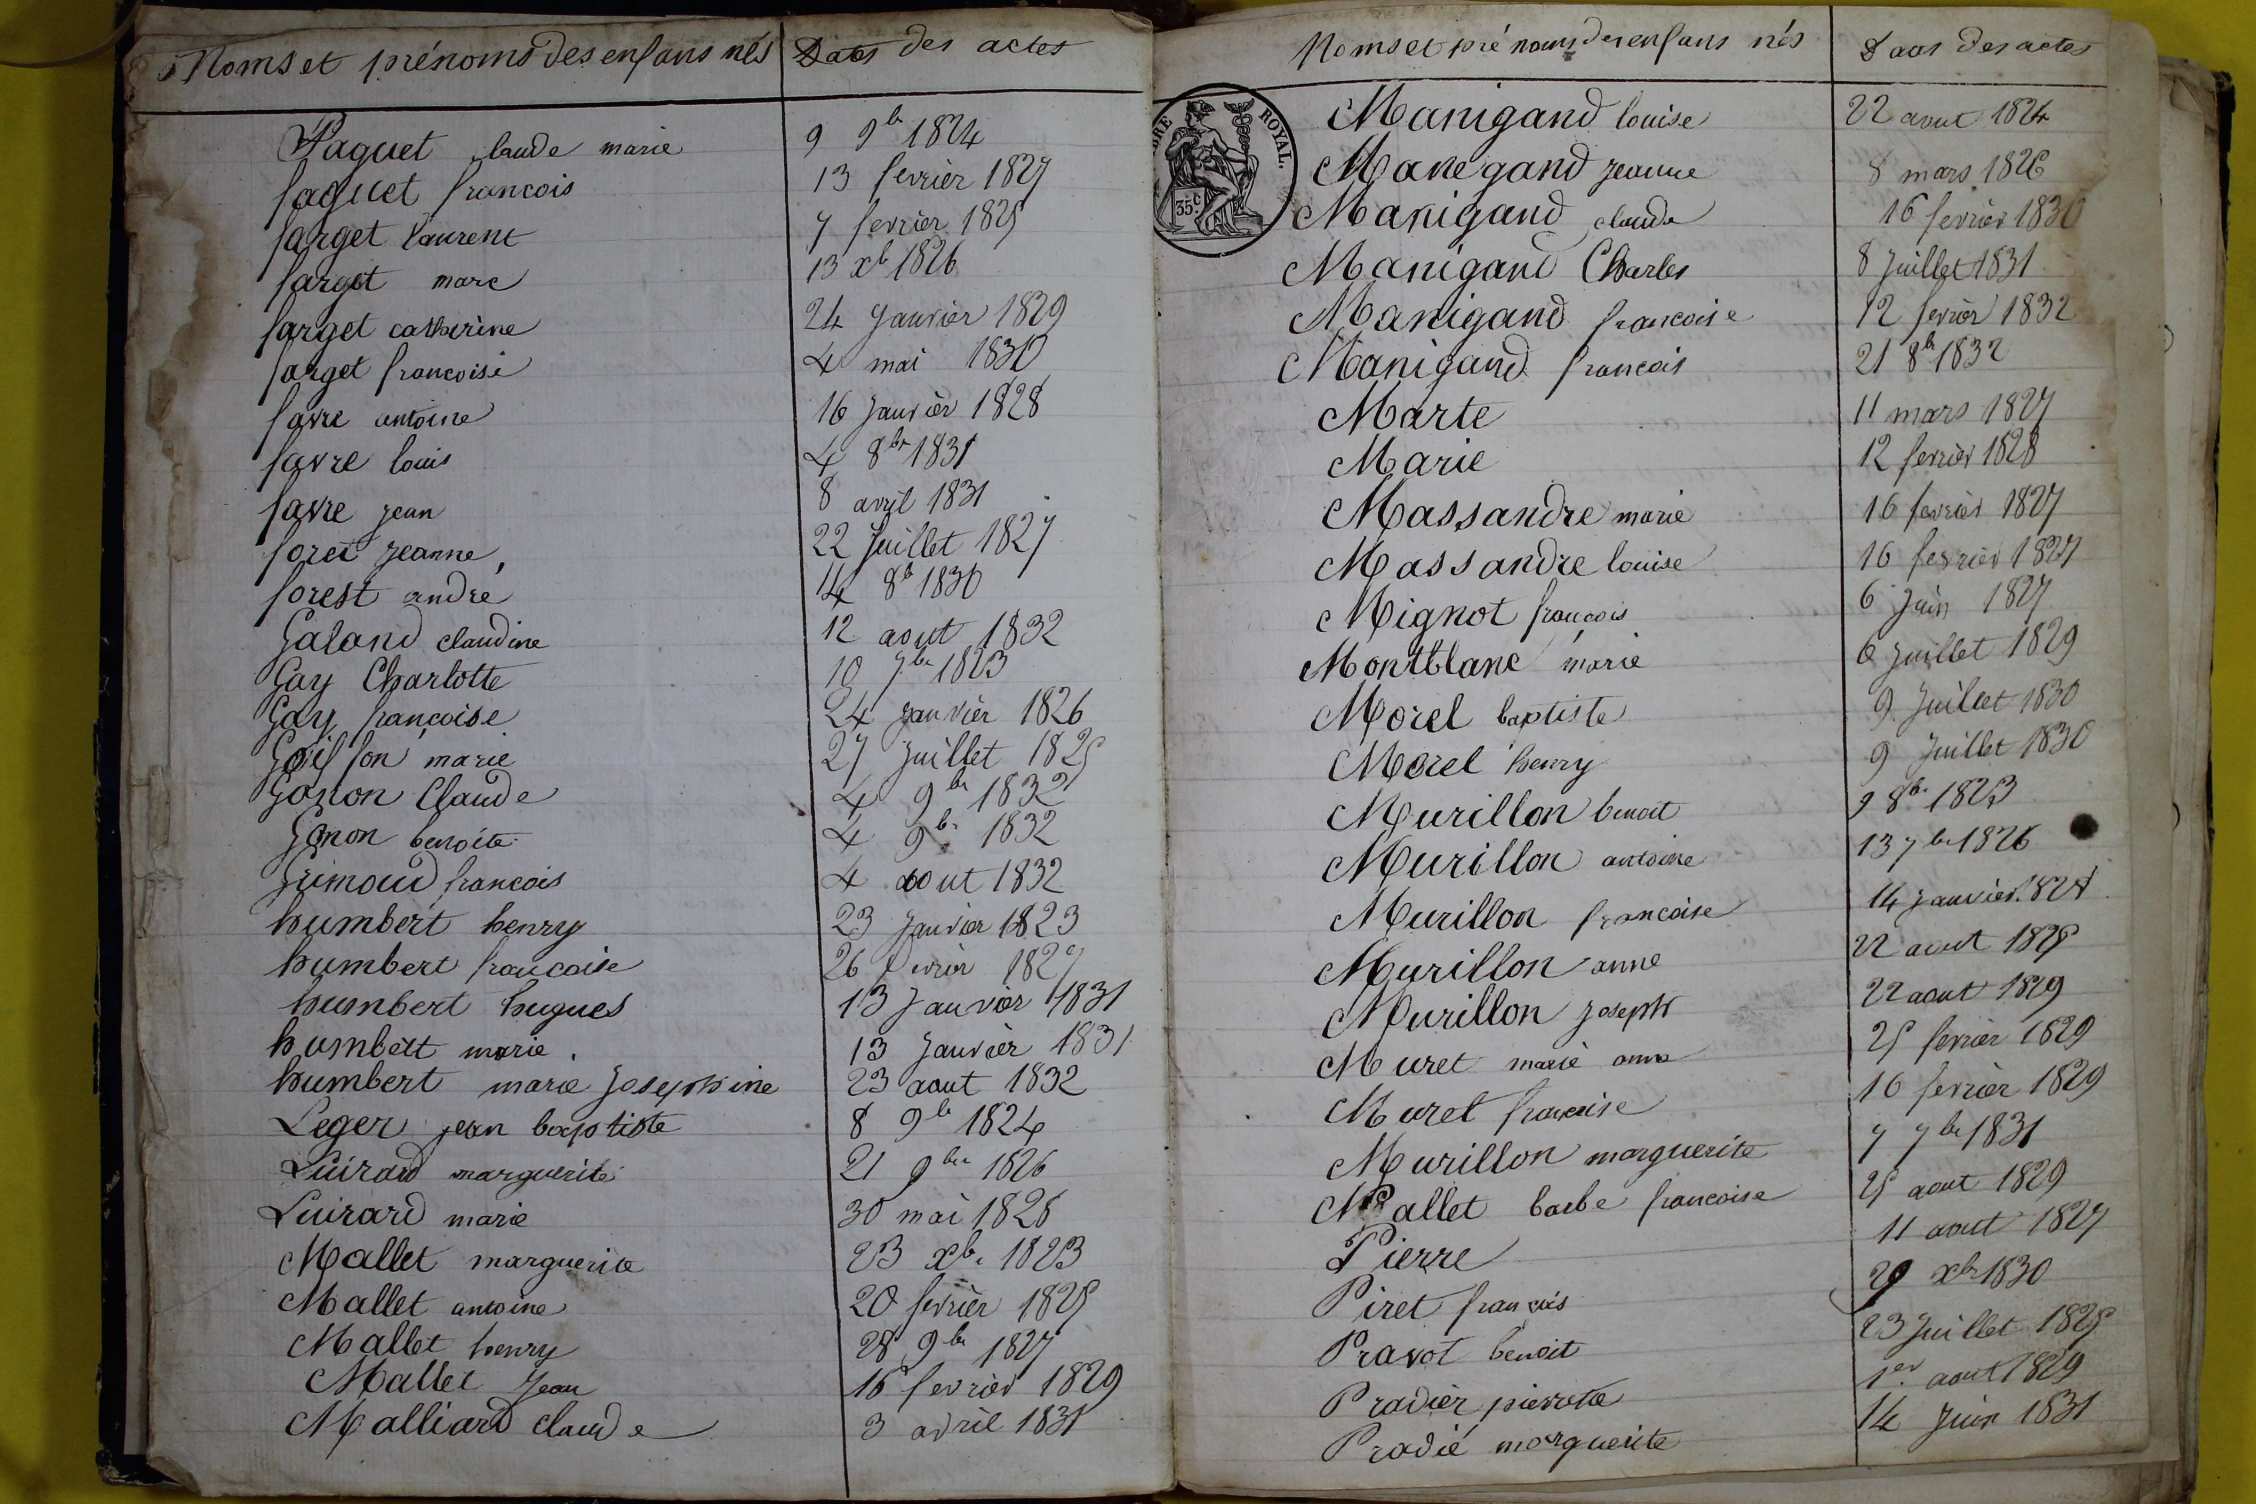 Noms et prénoms des enfans nés Dates des actes
Paquet claude marie 9 9bre 1824
faguet francois 13 fevrier 1827
farget laurent 7 fevrier 1825
farget marc 13 xb 1826
farget catherine 24 Janvier 1829
farget francoise 4 mai 1830
favre antoine 16 Janvier 1828
favre louis 4 8bre 1831
favre jean 8 avril 1831
foret jeanne 22 Juillet 1827
forest andré 14 8b 1830
Galand claudine 12 aout 1832
Gay Charlotte 10 7bre 1823
Gay francoise 24 janvier 1826
marie 27 Juillet 1825
Gonon Claude 4 9bre 1832
Gonon benoite 4 9bre 1832
Grimaud francois 4 aout 1832
humbert henry 23 Janvier 1823
humbert francoise 26 fevrier 1827
humbert hugues 13 Janvier 1831
humbert marie 13 Janvier 1831
humbert marie Josephine 23 aout 1832
Leger jean baptiste 8 9bre 1824
Luirard marguerite 21 9bre 1826
Luirard marie 30 mai 1828
Mallet marguerite 23 xbre 1823
Mallet antoine 20 fevrier 1825
Mallet henry 28 9bre 1827
Mallet Jean 16 fevrier 1829
Malliard claude 3 avril 1831
Noms et prénoms des enfans nés Dates des actes
BRE ROYAL.
35c
Manigand louise 22 aout 1824
Manegand jeanne 8 mars 1826
Manigand claude 16 fevrier 1830
Manigand Charles 8 Juillet 1831
Manigand francoise 12 fevrier 1832
Manigand francois 21 8b 1832
Marte 11 mars 1827
Marie 12 fevrier 1828
Massandre marie 16 fevrier 1827
Massandre louise 16 fevrier 1827
Mignot francois 6 Juin 1827
Montblanc marie 6 Juillet 1829
Morel baptiste 9 Juillet 1830
Morel henry 9 Juillet 1830
Murillon benoit 9 8bre 1823
Murillon antoine 13 7bre 1826
Murillon francoise 14 janvier
Murillon anne 22 aout 1828
Murillon joseph 22 aout 1829
Muret marie anne 25 fevrier 1829
Muret francoise 16 fevrier 1829
Murillon marguerite 7 7bre 1831
Mallet barbe francoise 25 aout 1829
Pierre 11 aout 1827
Piret francois 29 xbr 1830
Pravot benoit 23 Juillet 1825
Pradier pierrette 1er aout 1829
Pradié marguerite 14 Juin 1831